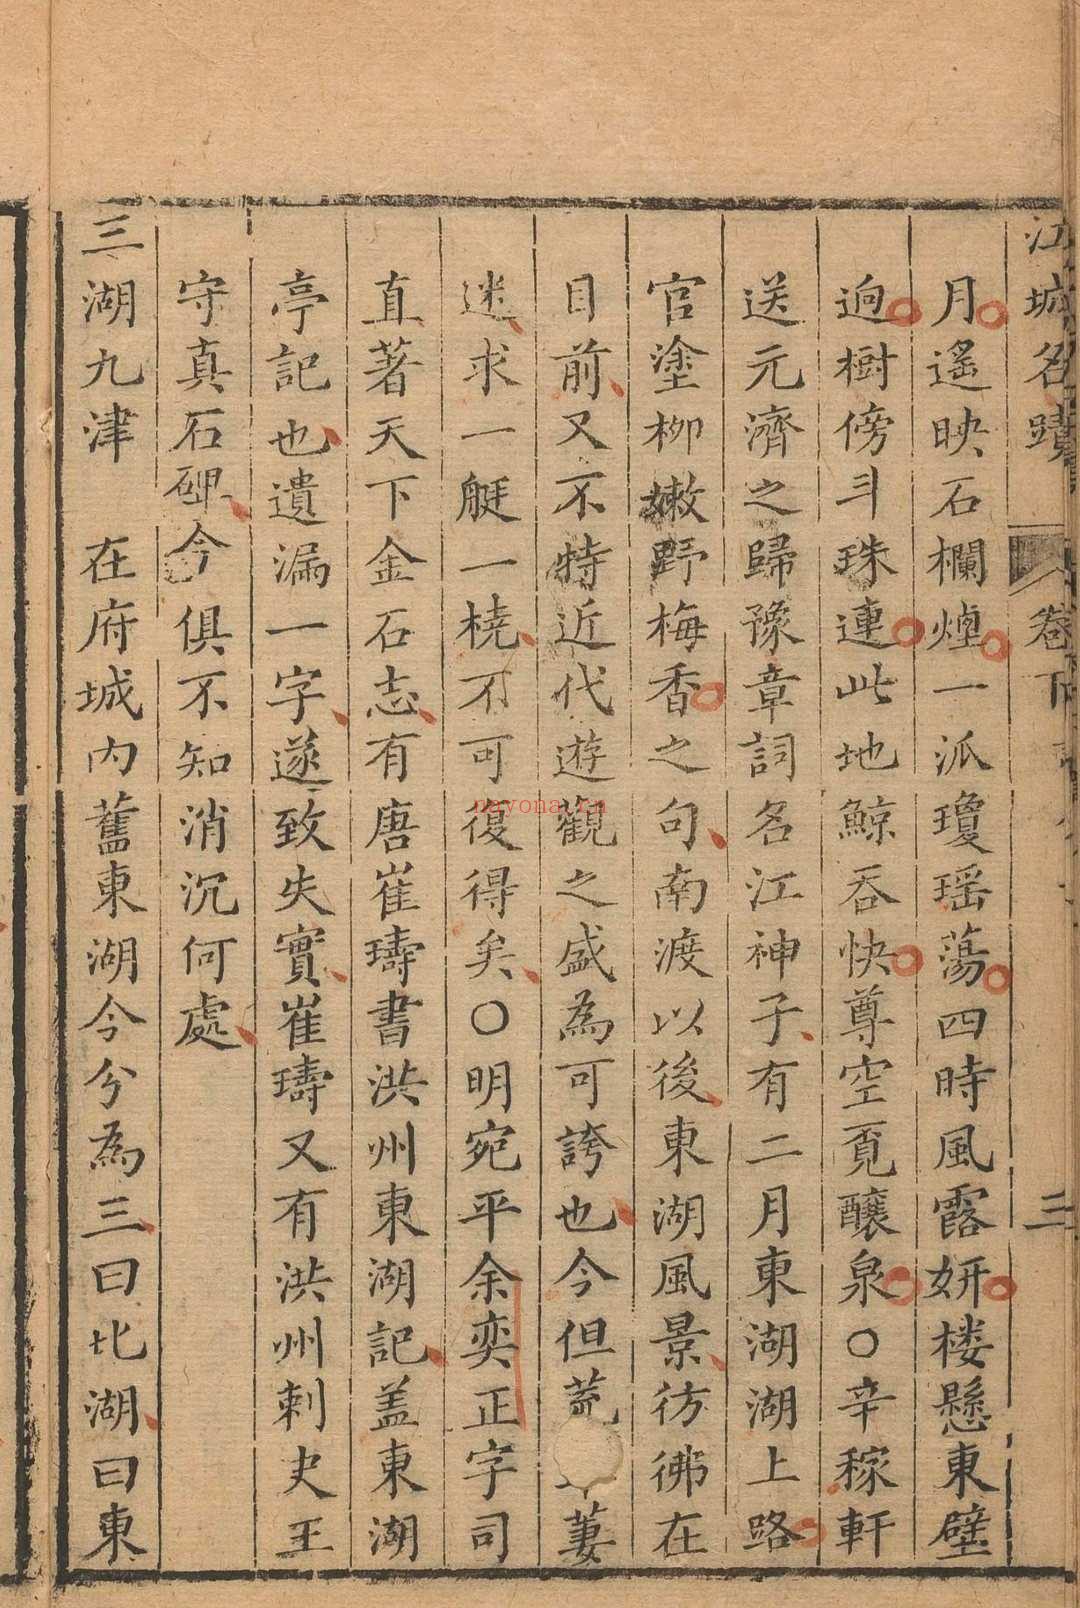 江城名蹟
卷下
三
月遙映石欄煙一派瓊瑤蕩四時風露妍楼懸東壁
逈樹傍斗珠連此地鯨吞快尊空覔釀泉〇辛稼軒
送元濟之歸豫章詞名江神子有二月東湖湖上路
官塗柳嫩野梅香之句南渡以後東湖風景彷彿在
目前又不特近代遊觀之盛為可誇也今但荒萋
迷求一艇一橈不可復得矣〇明宛平余奕正字司
直著天下金石志有唐崔璹書洪州東湖記盖東湖
亭記也遺漏一字遂致失實崔璹又有洪州刺史王
守真石碑今俱不知消沉何處
三湖九津 在府城內舊東湖今分為三曰北湖曰東
nayona.cn